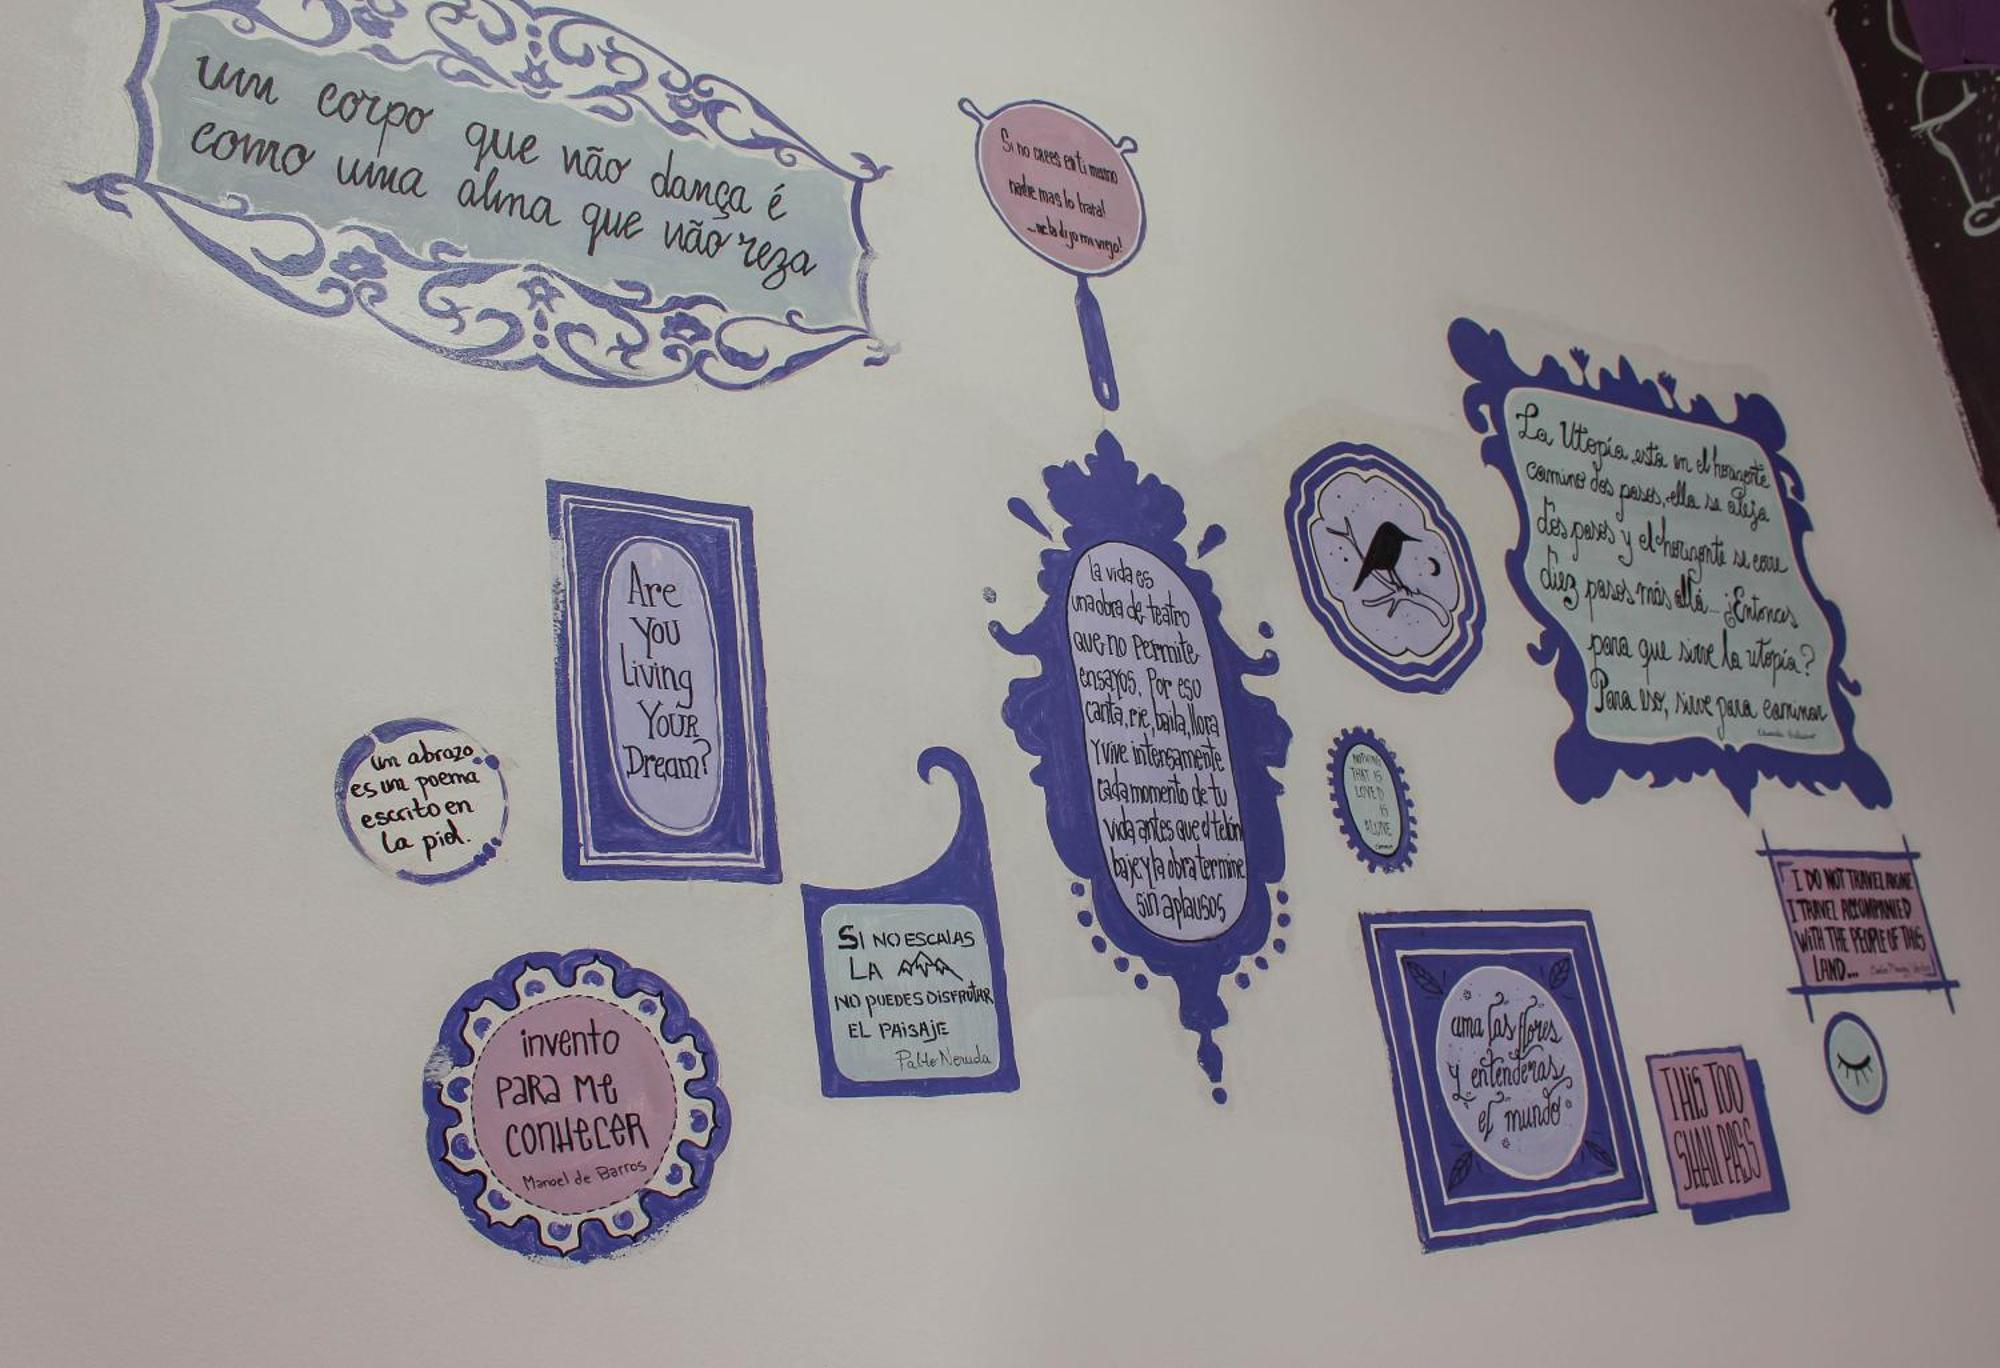 um corpo que não dança é
como uma alma que não reza
Si no crees en ti mismo
nadie mas lo hará!
...me lo dijo mi viejo!
La Utopía esta en el horizonte
camino dos pasos, ella se aleja
dos pasos y el horizonte se corre
diez pasos más allá... ¿Entonces
para que sirve la utopía?
Para eso, sirve para caminar
Are
You
Living
Your
Dream?
la vida es
una obra de teatro
que no permite
ensayos. Por eso
canta, rie, baila, llora
y vive intensamente
cada momento de tu
vida, antes que el telón
baje y la obra termine
sin aplausos
un abrazo
es un poema
escrito en
la piel.
NOTHING
THAT IS
LOVED
IS
ALONE
SI NO ESCALAS
LA
NO PUEDES DISFRUTAR
EL PAISAJE
Pablo Neruda
I DO NOT TRAVEL ALONE
I TRAVEL ACCOMPANIED
WITH THE PEOPLE OF THIS
LAND...
invento
PARA ME
CONHECER
Manoel de Barros
ama las flores
y entenderas
el mundo
THIS TOO
SHALL PASS